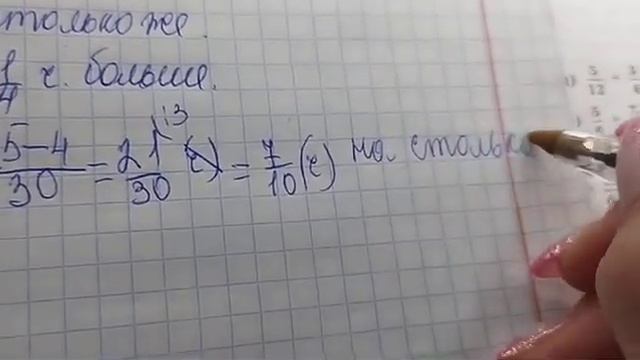 только же.
1/4 ч. больше.
5-4/30 = 21/30 (ч) = 7/10 (ч) на столько
3/12